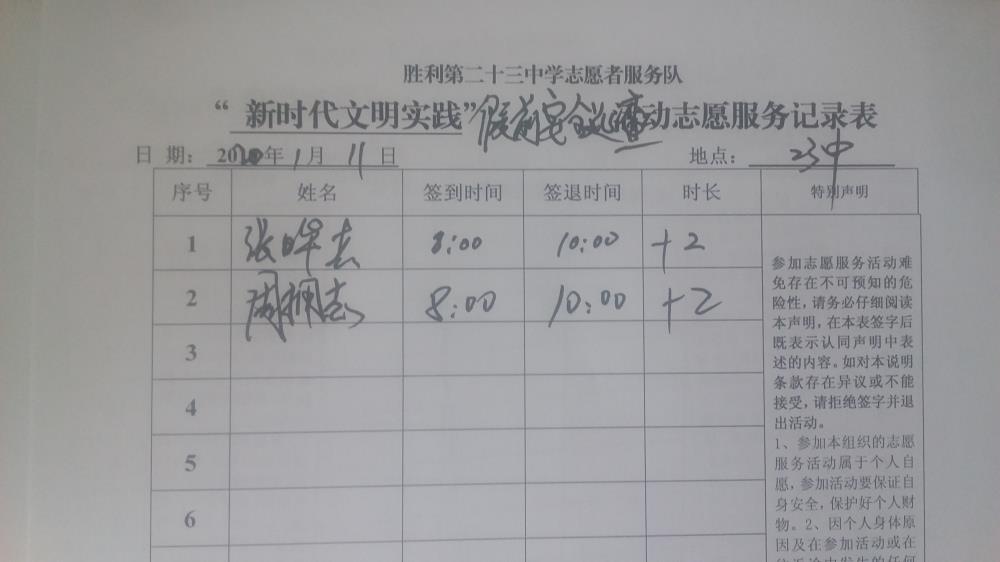 胜利第二十三中学志愿者服务队
“ 新时代文明实践”假前安全巡查动志愿服务记录表
日 期: 2020年1月11日 地点: 23中
序号 姓名 签到时间 签退时间 时长 特别声明
1 张 8:00 10:00 +2
2 周拥志 8:00 10:00 +2
3
4
5
6
参加志愿服务活动难
免存在不可预知的危
险性,请务必仔细阅读
本声明,在本表签字后
既表示认同声明中表
述的内容。如对本说明
条款存在异议或不能
接受,请拒绝签字并退
出活动。
1、参加本组织的志愿
服务活动属于个人自
愿,参加活动要保证自
身安全,保护好个人财
物。2、因个人身体原
因及在参加活动或在